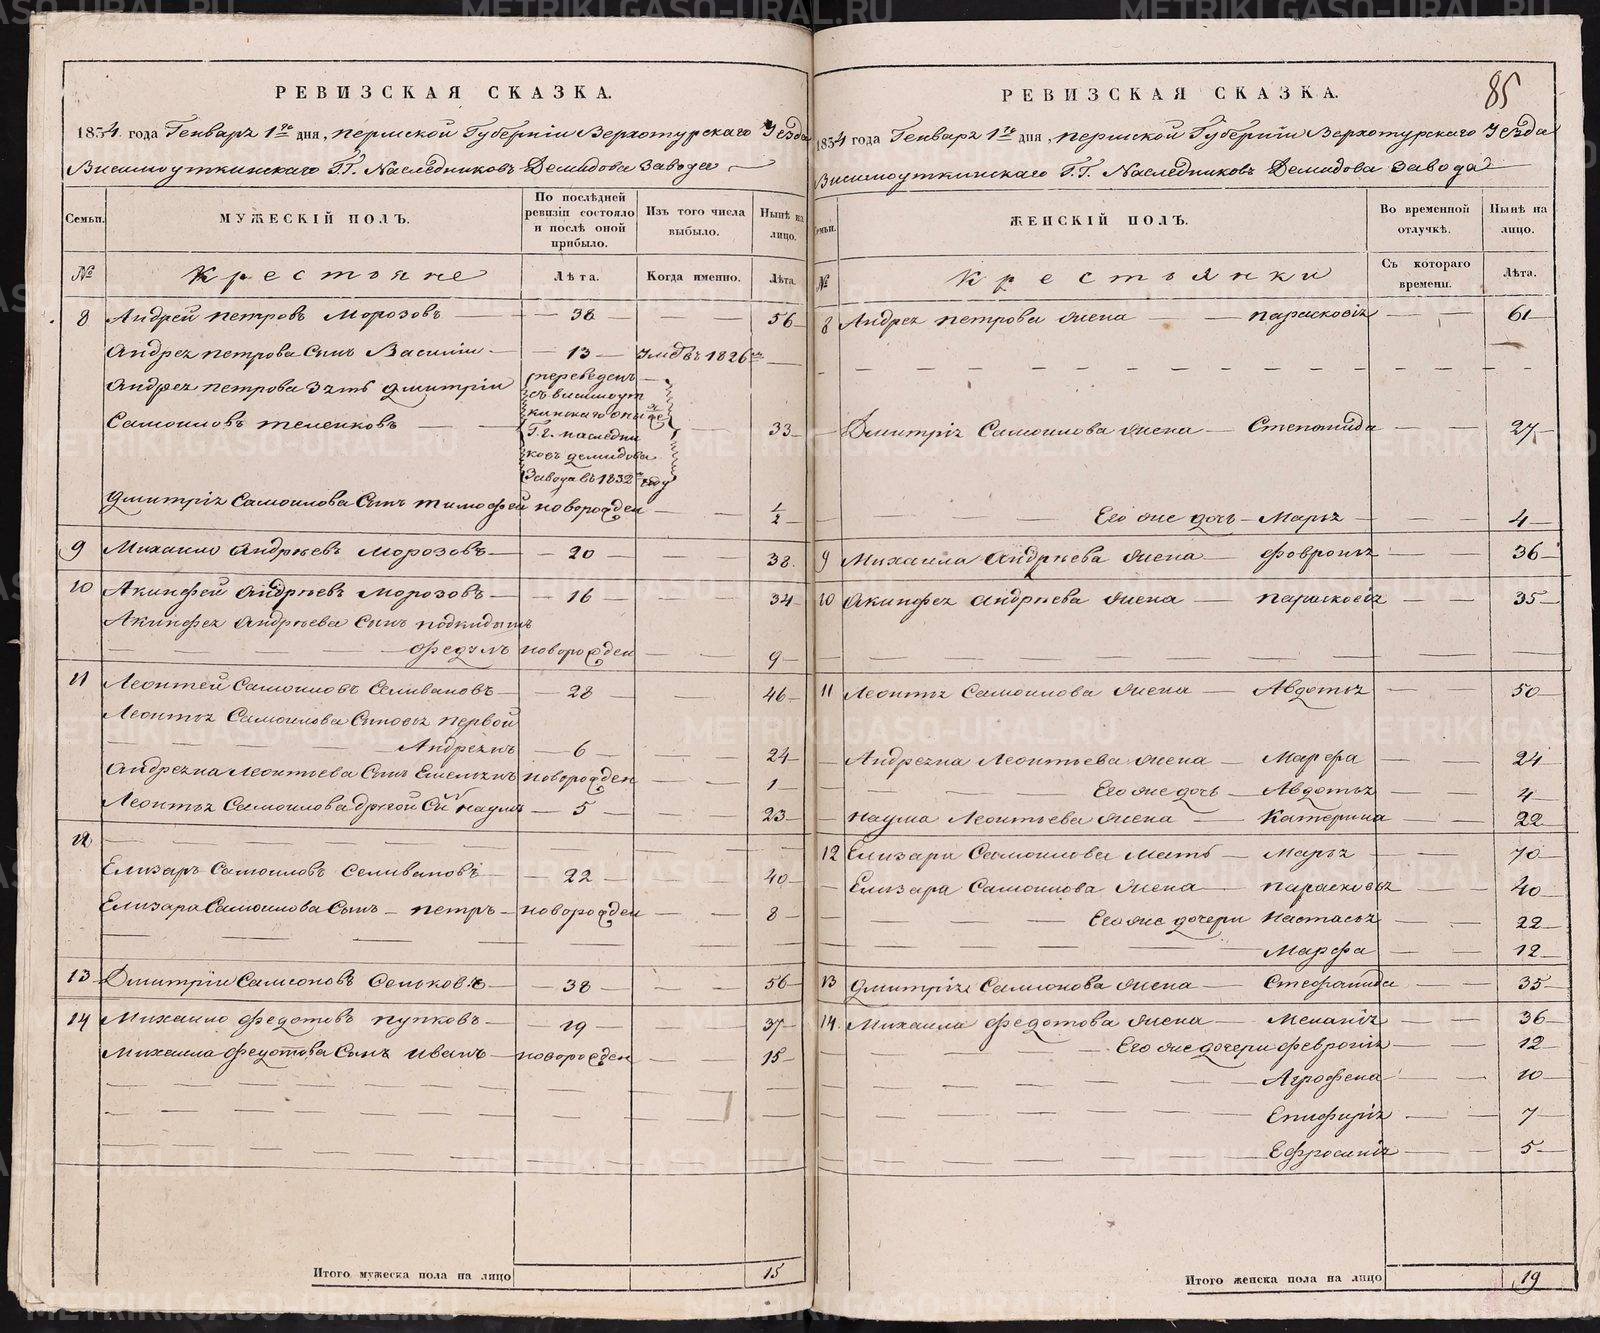 РЕВИЗСКАЯ СКАЗКА.
1834 года Генваря 1го дня, Пермской Губернiи Верхотурскаго Уезда
Висимоуткинскаго Г.Г. Наследниковъ Демидова Завода
Семьи.
МУЖЕСКIЙ ПОЛЪ.
По послѣдней ревизiи состояло и послѣ оной прибыло.
Изъ того числа выбыло.
Нынѣ на лицо.
№
Крестьяне
Лѣта.
Когда именно.
Лѣта.
8 Андрей Петровъ Морозовъ 38 56
Андрея Петрова Сынъ Василiи 13 Умръ въ 1826
Андрея Петрова Зять Дмитрiи
Самоиловъ Теленковъ 33
переведенъ
съ висимоут
кинскаго
Г.г. наследни
ковъ демидова
Завода въ 1832 году
Дмитрiя Самоилова Сынъ Тимофей новорожден 1/2
9 Михаило Андрѣевъ Морозовъ 20 38
10 Акинфей Андрѣевъ Морозовъ 16 34
Акинфея Андрѣева Сынъ подкидышъ
новорожден 9
11 Леонтей Самоиловъ Селивановъ 28 46
Леонтья Самоилова Сыновья первой
Андреянъ 6 24
Андреяна Леонтьева Сынъ Емельянъ новорожден 1
Леонтья Самоилова другой Сынъ Наумъ 5 23
12
Елизаръ Самоиловъ Селивановъ 22 40
Елизара Самоилова Сынъ Петръ новорожден 8
13 Дмитрiи Самсоновъ 38 56
14 Михаило Федотовъ Пупковъ 19 37
Михаила Федотова Сынъ Иванъ новорожден 15
Итого мужеска пола на лицо 15
85
РЕВИЗСКАЯ СКАЗКА.
1834 года Генваря 1го дня, Пермской Губернiи Верхотурскаго Уезда
Висимоуткинскаго Г.Г. Наследниковъ Демидова Завода
Семьи.
ЖЕНСКIЙ ПОЛЪ.
Во временной отлучкѣ.
Нынѣ на лицо.
№
Крестьянки
Съ котораго времени.
Лѣта.
8 Андрея Петрова жена Парасковiя 61
Дмитрiя Самоилова жена Степанида 27
Его же дочь Марья 4
9 Михаила Андрѣева жена Февронья 36
10 Акинфея Андрѣева жена Парасковiя 35
11 Леонтья Самоилова жена Авдотья 50
Андреяна Леонтьева жена Марфа 24
Его же дочь Авдотья 4
Наума Леонтьева жена Катерина 22
12 Елизара Самоилова Мать Марья 70
Елизара Самоилова жена Парасковья 40
Его же дочери Настасья 22
Марфа 12
13 Дмитрiя Самсонова жена Стефанида 35
14 Михаила Федотова жена Меланiя 36
Его же дочери Февронiя 12
Агрофена 10
7
Ефросинiя 5
Итого женска пола на лицо 19
METRIKI.GASO-URAL.RU